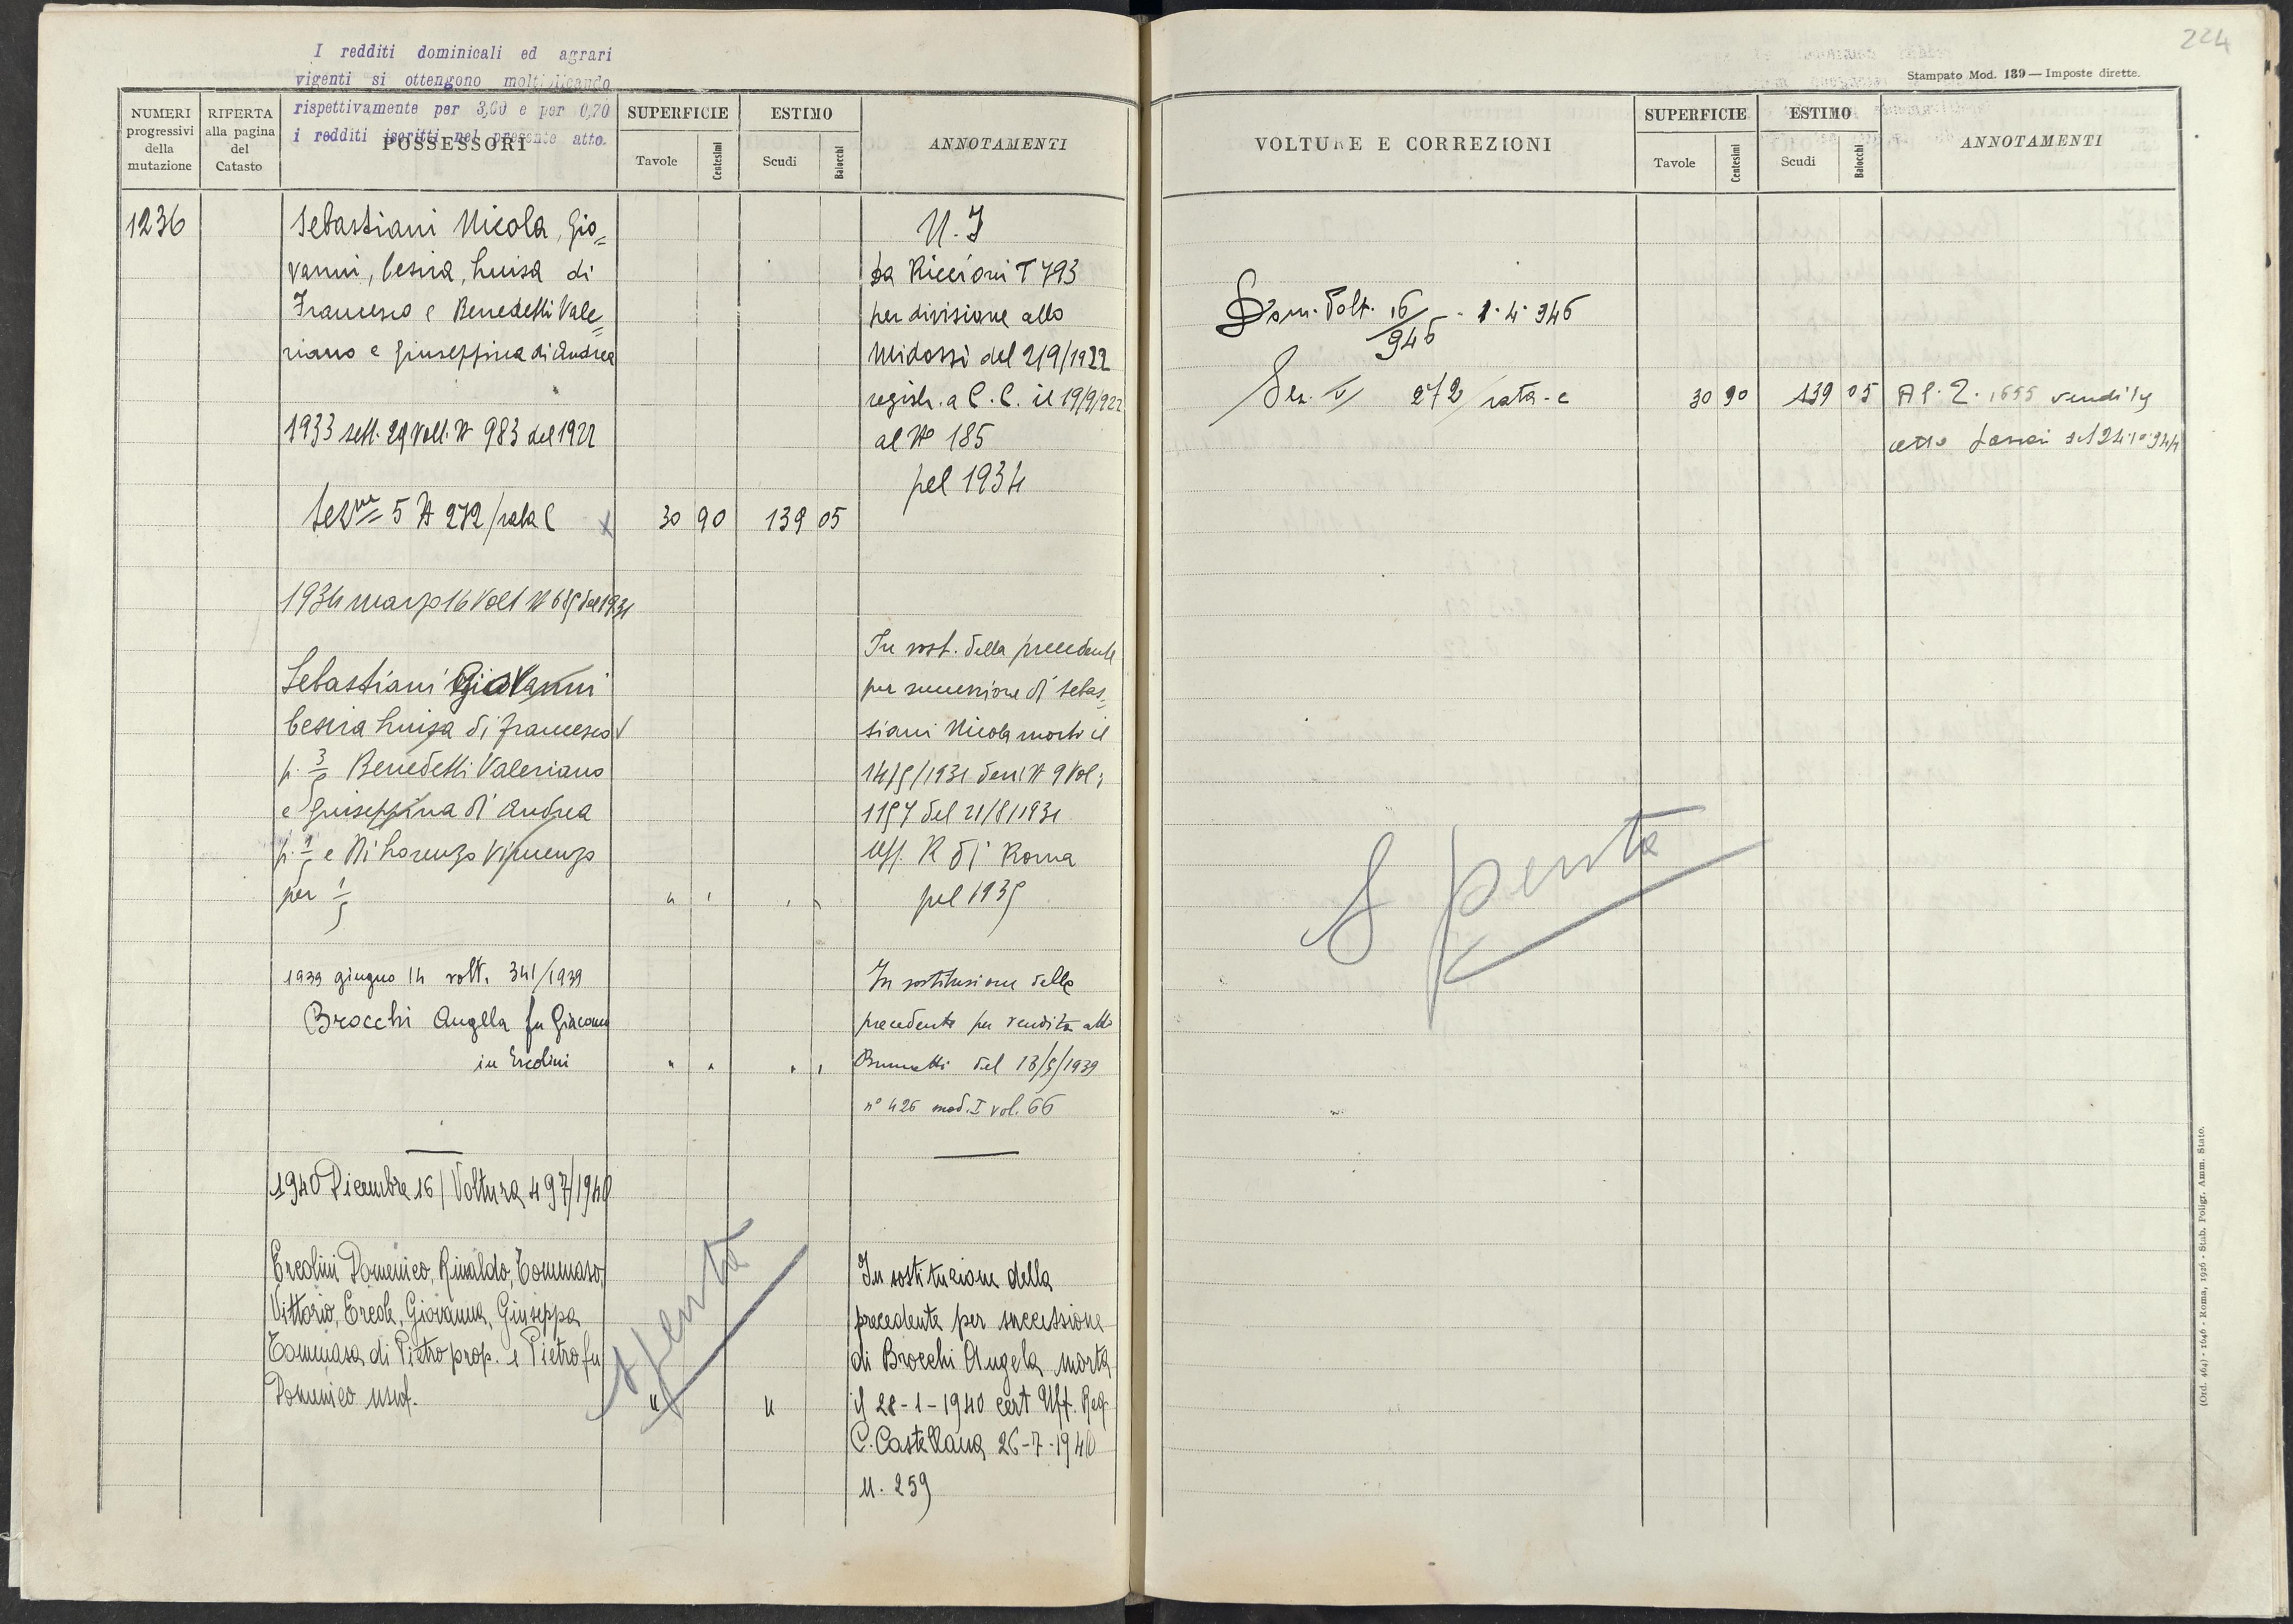 I redditi dominicali ed agrari
vigenti si ottengono moltiplicando
rispettivamente per 3,00 e per 0,70
i redditi iscritti nel presente atto.
NUMERI
progressivi
della
mutazione
RIFERTA
alla pagina
del
Catasto
POSSESSORI
SUPERFICIE
Tavole
Centesimi
ESTIMO
Scudi
Baiocchi
ANNOTAMENTI
1236
Sebastiani Nicola, Gio=
vanni, Cesira, Luisa di
Francesco e Benedetti Vale=
riano e Giuseppina di Andrea
1933 sett. 29 Volt. N 983 del 1922
Sez.ne 5 N 272/rata C
30 90 139 05
N. I
Da Riccioni T 793
per divisione atto
Midossi del 2/9/1922
registr. a C. C. il 19/9/922
al No 185
pel 1934
1934 marzo 16 Volt N 685 del 1931
Sebastiani Giovanni
Cesira Luisa di Francesco
p. 3/5 Benedetti Valeriano
e Giuseppina di Andrea
p. 1/5 e Di Lorenzo Vincenzo
per 1/5
In sost. della precedente
per successione di Sebas=
tiani Nicola morto il
14/5/1931 den. N 9 Vol:
1157 del 21/8/1931
Uff. R di Roma
pel 1935
1939 giugno 14 volt. 341/1939
Brocchi Angela fu Giacomo
in Ercolini
In sostituzione della
precedente per vendita atto
Brunetti del 13/5/1939
n° 426 mod. I vol. 66
1940 Dicembre 16 / Voltura 497/1940
Ercolini Domenico, Rinaldo, Tommaso,
Vittorio, Ercole, Giovanna, Giuseppa
Tommasa di Pietro prop. e Pietro fu
Domenico usuf.
" "
Spenta
In sostituzione della
precedente per successione
di Brocchi Angela morta
il 28-1-1940 cert Uff. Reg
C. Castellana 26-7-1940
N. 259
224
Stampato Mod. 139 — Imposte dirette.
VOLTURE E CORREZIONI
SUPERFICIE
Tavole
Centesimi
ESTIMO
Scudi
Baiocchi
ANNOTAMENTI
Dom. Volt. 16/945 . 1.4.946
Sez. V 272/rata-c 30 90 139 05 Al. 2. 1655 vendita
atto del 24.10.944
Spenta
(Ord. 464) - 1646 - Roma, 1926 - Stab. Poligr. Amm. Stato.